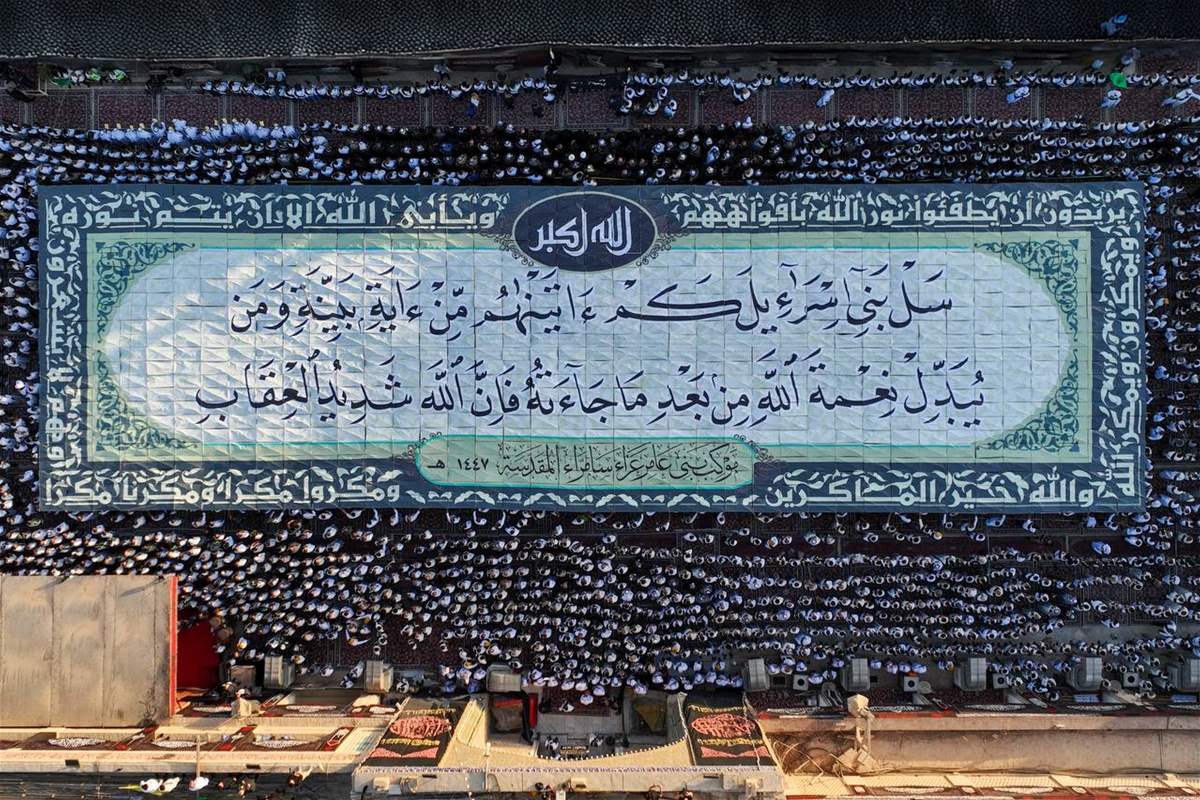 يريدون أن يطفئوا نور الله بأفواههم
ويأبى الله إلا أن يتم نوره
الله اكبر
سَلْ بَنِىٓ إِسْرَٰٓءِيلَ كَمْ ءَاتَيْنَٰهُم مِّنْ ءَايَةٍۭ بَيِّنَةٍ وَمَن
يُبَدِّلْ نِعْمَةَ ٱللَّهِ مِنۢ بَعْدِ مَا جَآءَتْهُ فَإِنَّ ٱللَّهَ شَدِيدُ ٱلْعِقَابِ
موكب بني عامر عزاء سامراء المقدسة ١٤٤٧ هـ
ويمكرون ويمكر الله
والله خير الماكرين
ومكروا مكرا ومكرنا مكرا